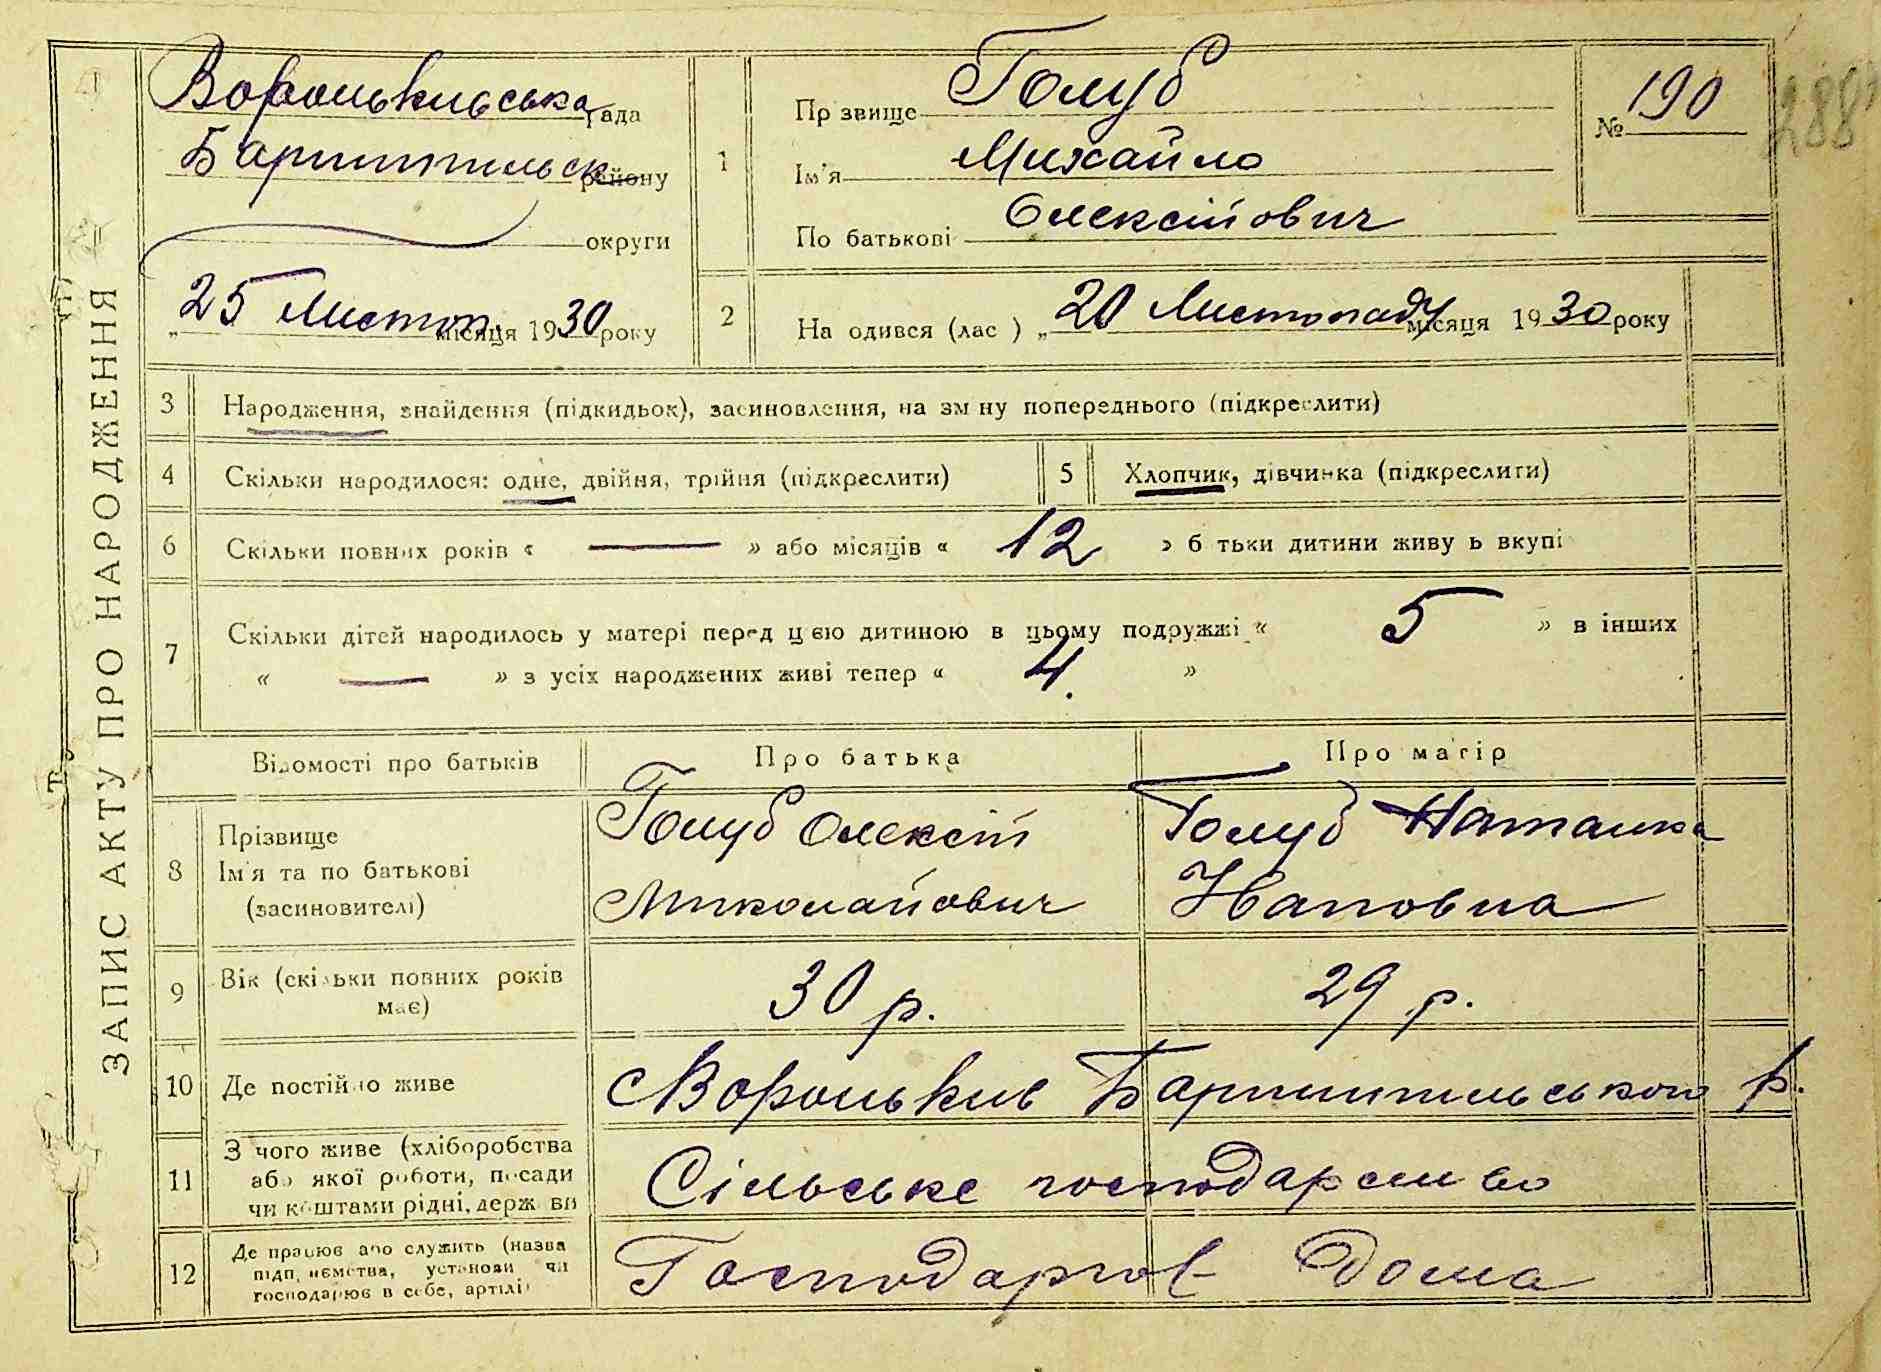 ЗАПИС АКТУ ПРО НАРОДЖЕННЯ
Вороньківська рада
Бориспільськ району
округи
„ 25 Листоп. місяця 1930 року
1
Пр звище Голуб
Ім'я Михайло
По батькові Олексійович
№ 190
288
2 На одився (лас ) „ 20 Листопаду місяця 1930 року
3 Народження, знайдення (підкидьок), засиновлення, на зм ну попереднього (підкреслити)
4 Скільки народилося: одне, двійня, трійня (підкреслити)
5 Хлопчик, дівчинка (підкреслити)
6 Скільки повних років « — » або місяців « 12 » б тьки дитини живу ь вкупі
7 Скільки дітей народилось у матері перед цією дитиною в цьому подружжі « 5 » в інших
« — » з усіх народжених живі тепер « 4. »
Відомості про батьків Про батька Про матір
8 Прізвище
Ім'я та по батькові
(засиновителі)
Голуб Олексій
Миколайович
Голуб Наталка
9 Вік (скільки повних років
має)
30 р. 29 р.
10 Де постійно живе Вороньків Бориспільського р.
11 З чого живе (хліборобства
або якої роботи, посади
чи коштами рідні, держ ви
Сільське господарство
12 Де працює або служить (назва
підп иємства, установи чи
господарює в себе, артілі
Господарює Дома